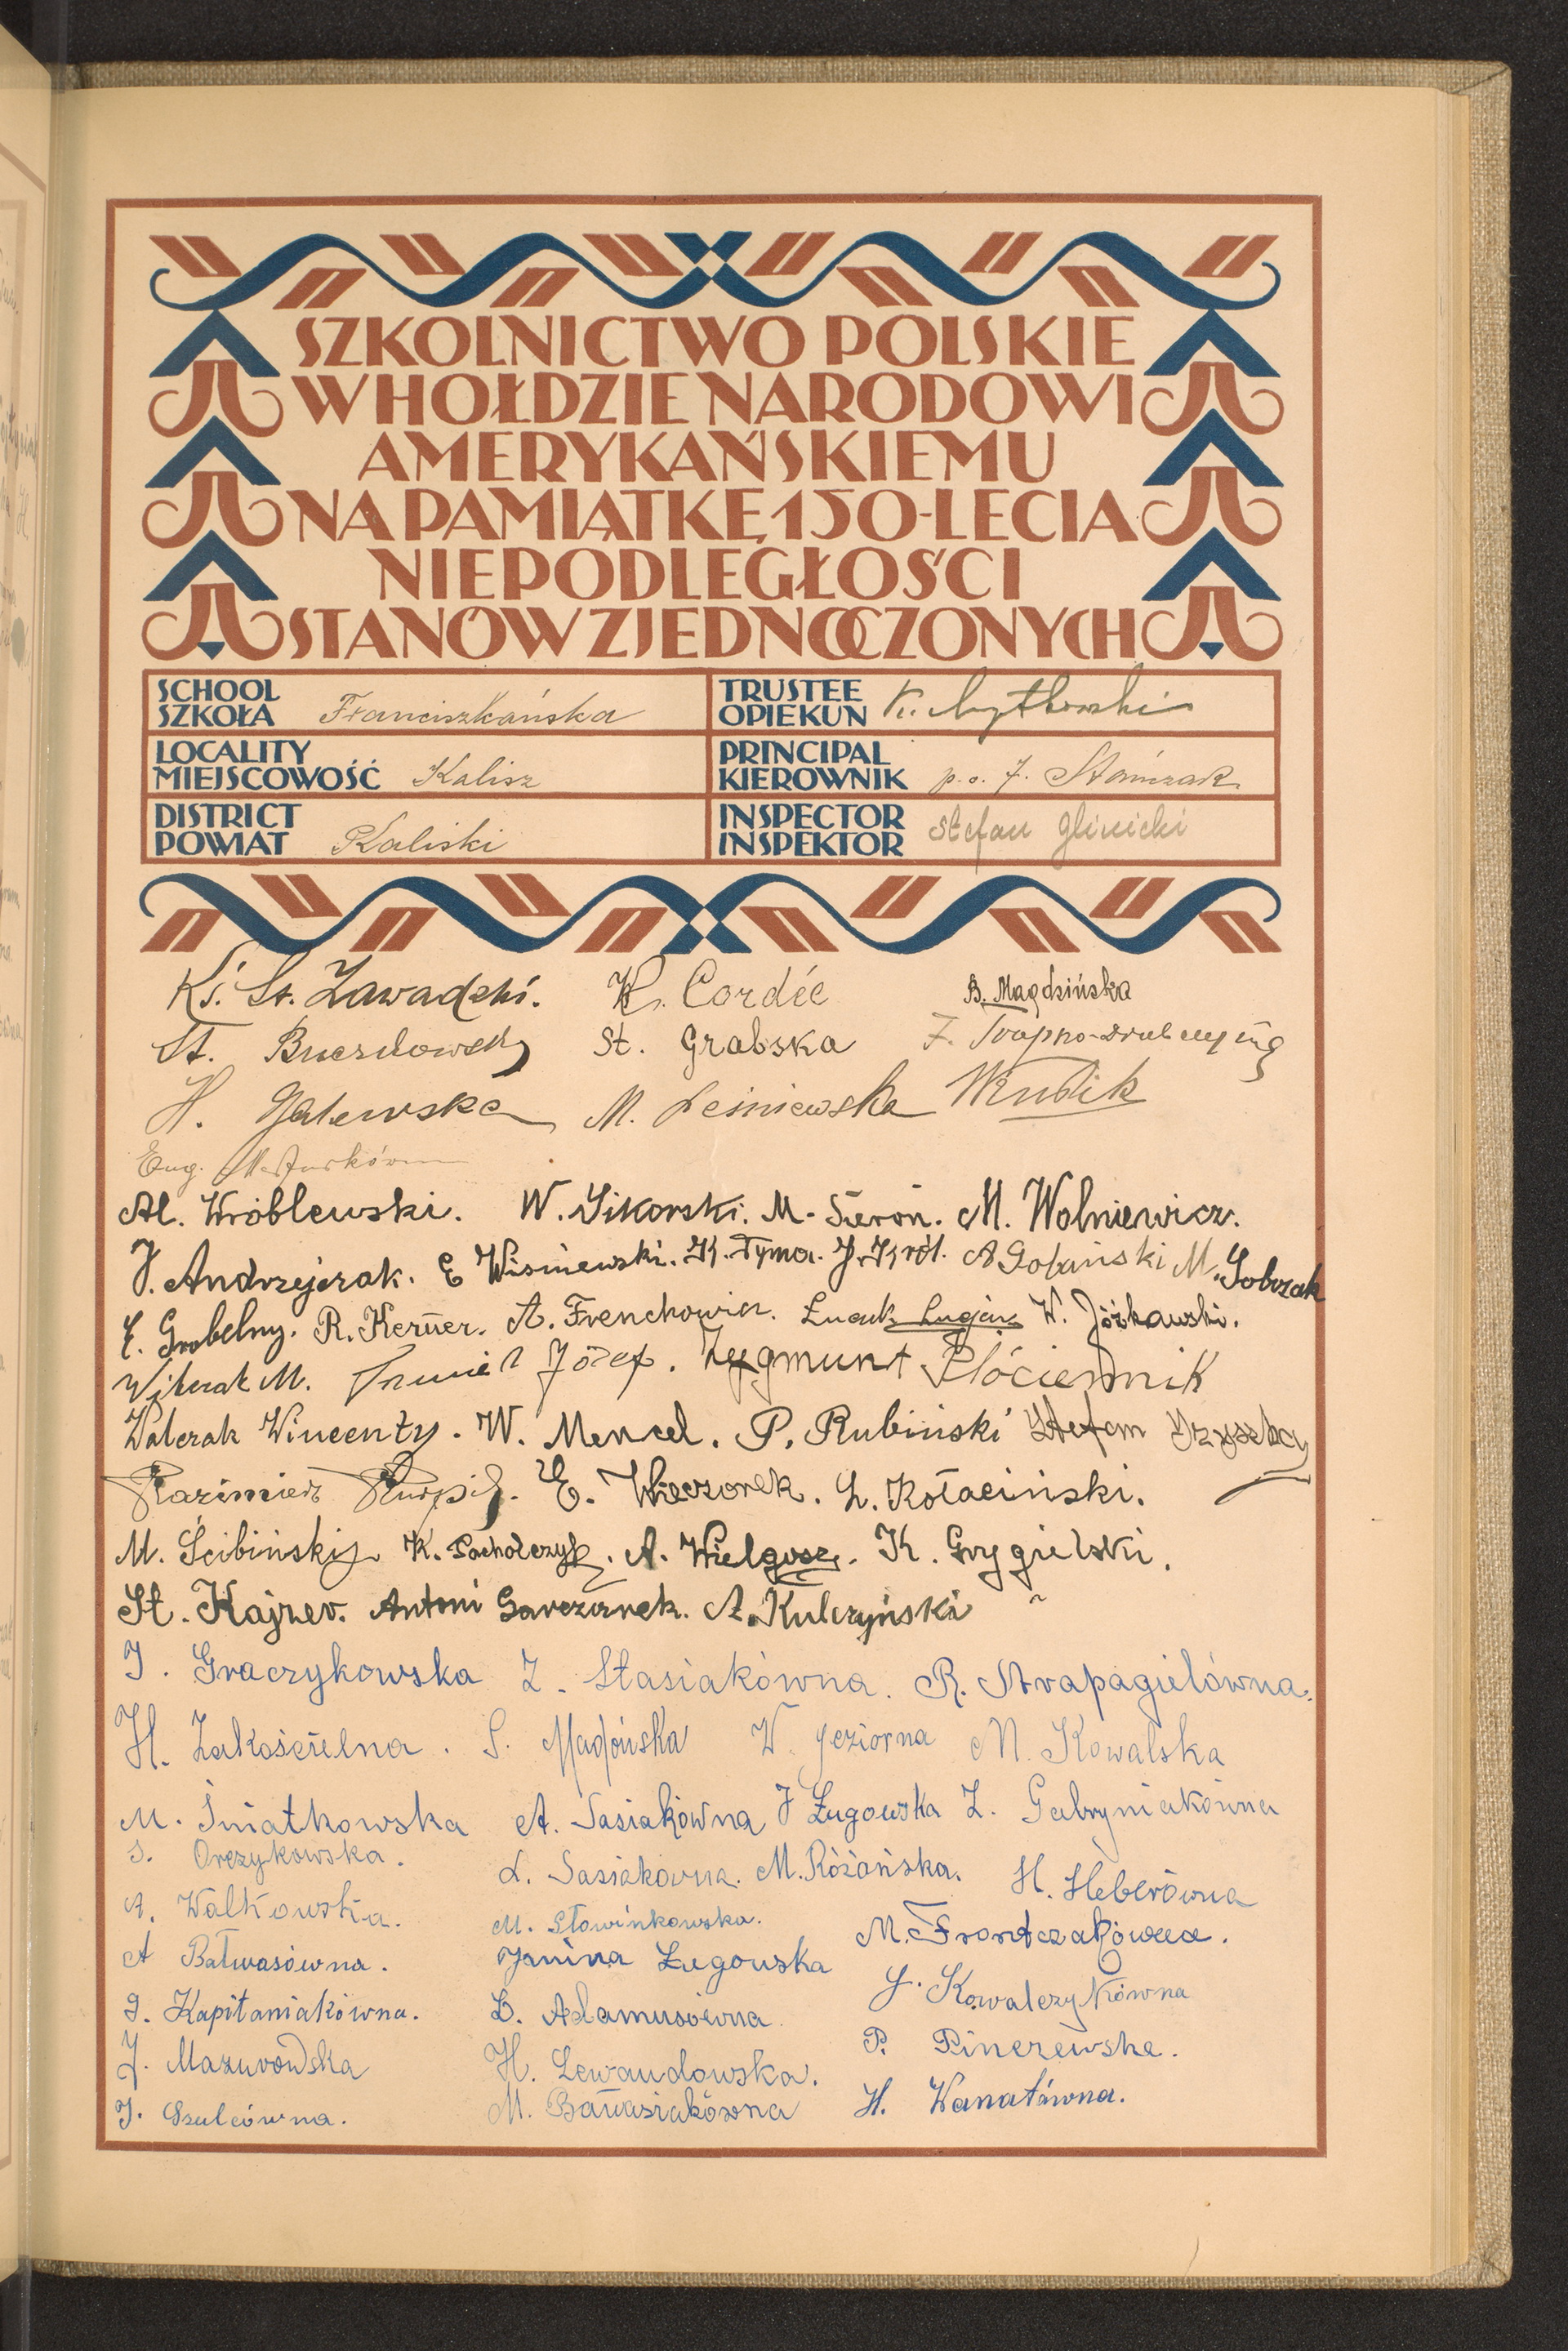 SZKOLNICTWO POLSKIE
W HOŁDZIE NARODOWI
AMERYKAŃSKIEMU
NA PAMIĄTKĘ 150-LECIA
NIEPODLEGŁOŚCI
STANÓW ZJEDNOCZONYCH
SCHOOL
SZKOŁA Franciszkańska
TRUSTEE
OPIEKUN K.
LOCALITY
MIEJSCOWOŚĆ Kalisz
PRINCIPAL
KIEROWNIK p.o. J. Stańczak
DISTRICT
POWIAT Kaliski
INSPECTOR
INSPEKTOR Stefan Glinicki
Ks. St. Zawadzki. K. Cordée B. Magdzińska
St. St. Grabska F.
H. Galewska M. Leśniewska WKubik
Eug.
Al. Wróblewski. W. Sikorski. M. Sieroń. M. Wolniewicz.
J. Andrzejczak. E Wisniewski. K. Tyma. J. Król. A Golański M. Sobczak
E. Grobelny. R. Kerner. A. Frenchowicz. Lucjan W. Jóźkawski.
Witczak M. Józef. Zygmunt Płóciennik
Walczak Wincenty. W. Mencel. P. Rubiński Stefan
Kazimierz E. Wieczorek. L. Kołaciński.
M. Ścibiński K. Pacholczyk. A. Wielgosz. K. Grygielski.
St. Kajzer. Antoni Garczarek. A. Kulczyński
J. Graczykowska Z. Stasiakówna. R. Strapagielówna.
H. Zakościelna. S. Madońska W. Jeziorna M. Kowalska
M. Śniatkowska A. Sasiakówna J Ługowska Z. Gabryniakówna
S. Orczykowska. L. Sasiakówna. M. Różańska. H. Heberówna
A. Walkowska. M. Słowińkowska. M. Frontczakówna.
A Bałwasówna. Janina Ługowska J. Kowalczykówna
J. Kapitaniakówna. L. Adamusówna P. Pinczewska.
J. Mazurowska H. Lewandowska. H. Wanatówna.
J. Szulcówna. M. Bawasiakówna